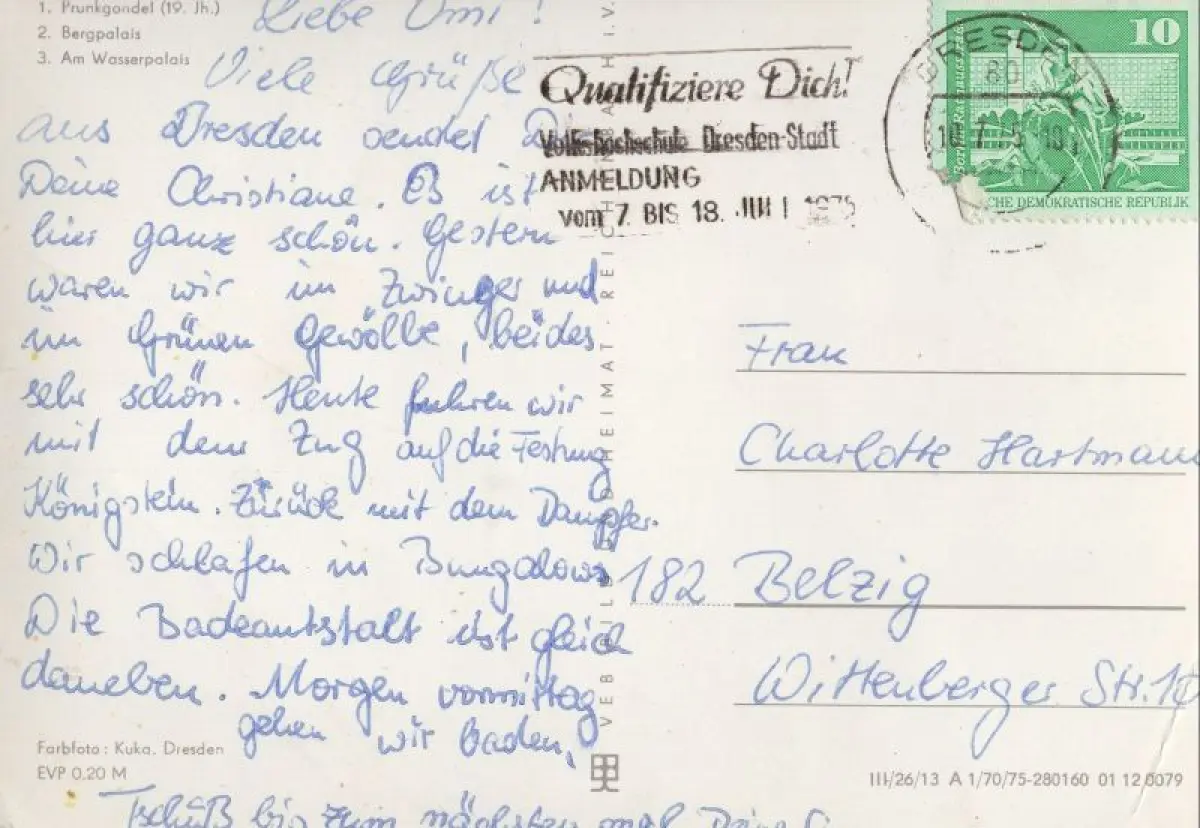 1. Prunkgondel (19. Jh.)
2. Bergpalais
3. Am Wasserpalais
Liebe Omi!
Viele Grüße
aus Dresden sendet Dir
Deine Christiane. Es ist
hier ganz schön. Gestern
waren wir im Zwinger und
im Grünen Gewölbe, beides
sehr schön. Heute fuhren wir
mit dem Zug auf die Festung
Königstein. Zürück mit dem Dampfer.
Wir schlafen in Bungalows
Die Badeantstalt ist gleich
daneben. Morgen vormittag
gehen wir baden,
Tschüß bis zum nächsten mal Deine
Farbfoto: Kuka, Dresden
EVP 0,20 M
VEB BILD UND HEIMAT REICHENBACH I. V.
Qualifiziere Dich!
Volkshochschule Dresden-Stadt
ANMELDUNG
vom 7. BIS 18. JULI 1975
DRESDEN
80
10
CHE DEMOKRATISCHE REPUBLIK
Frau
Charlotte Hartmann
182 Belzig
Wittenberger Str.
III/26/13 A 1/70/75-280160 01 12 0079